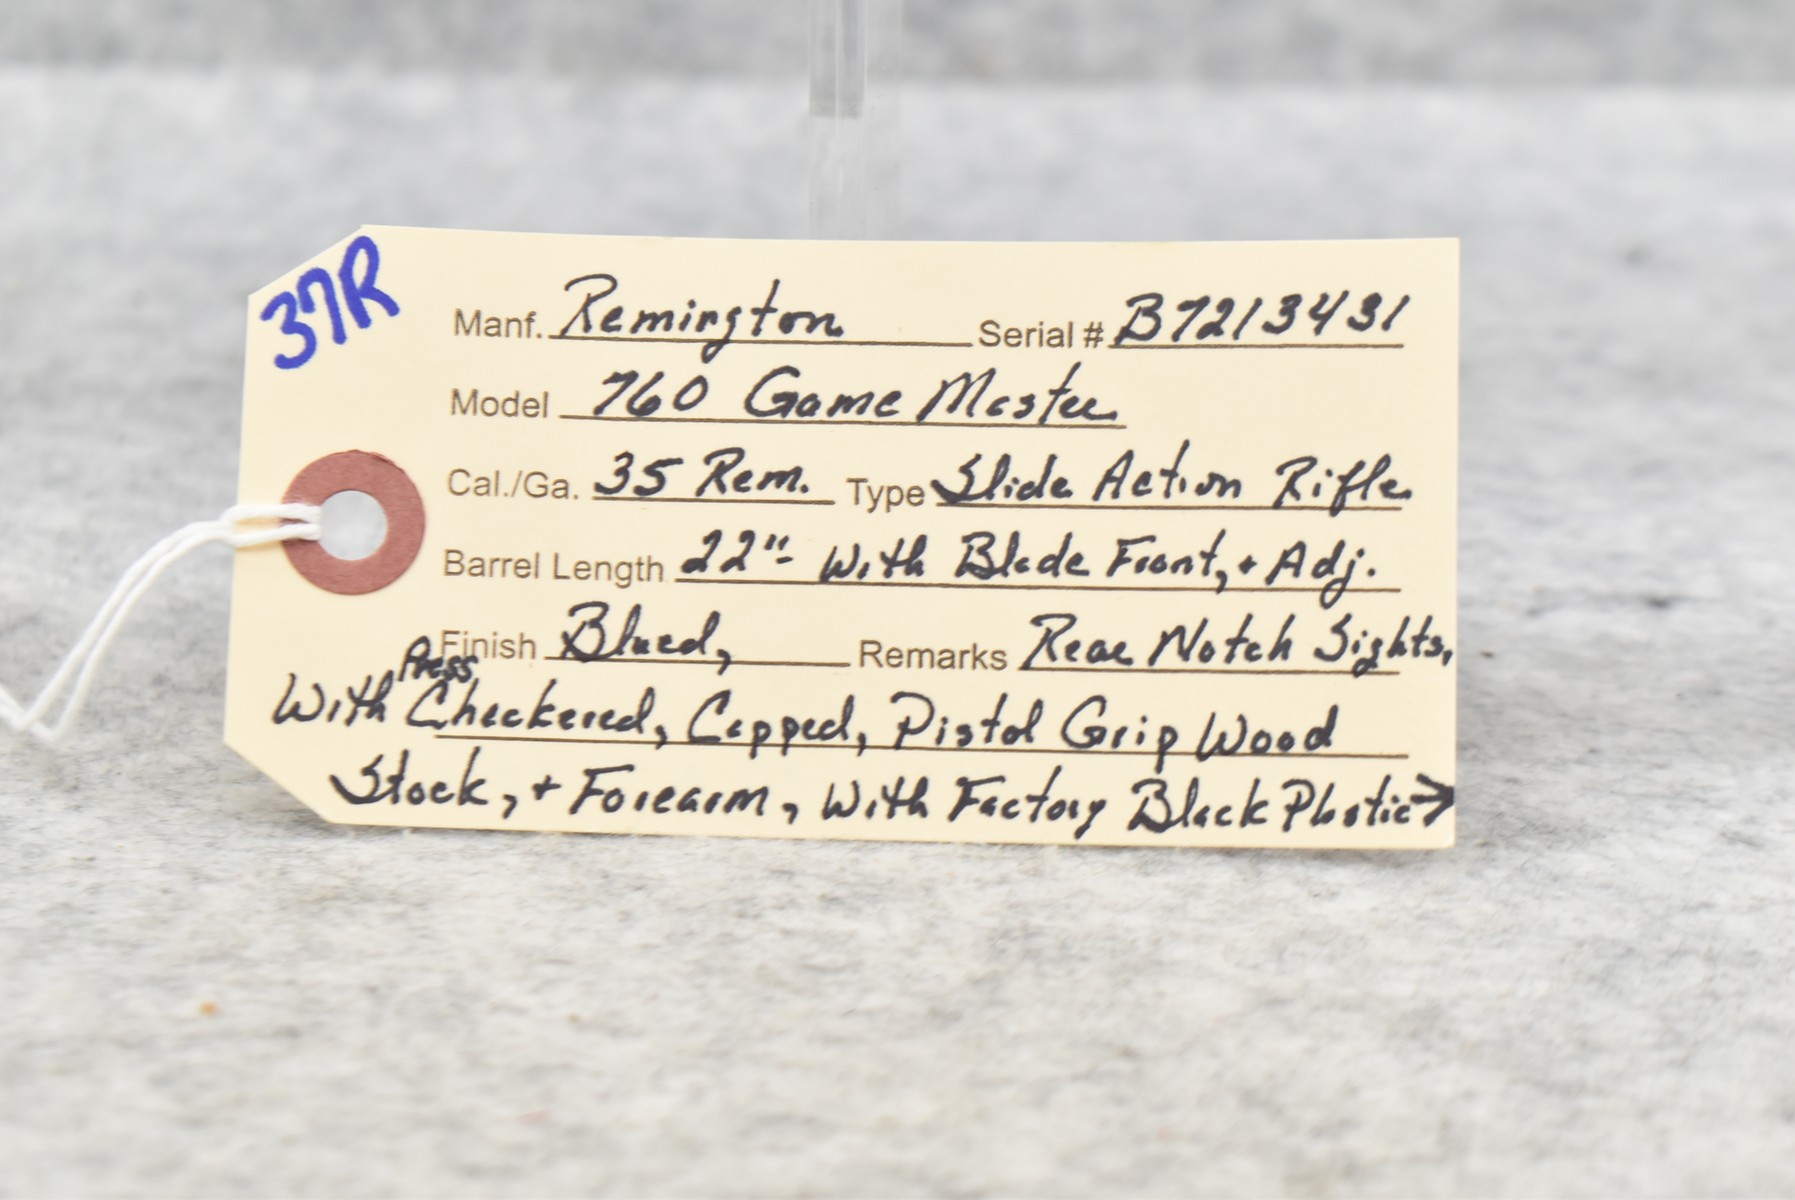 37R
Manf. Remington Serial # B7213431
Model 760 Game Master
Cal./Ga. 35 Rem. Type Slide Action Rifle
Barrel Length 22"- With Blade Front, + Adj.
Finish Blued, Remarks Rear Notch Sights,
With Press Checkered, Capped, Pistol Grip Wood
Stock, + Forearm, With Factory Black Plastic →